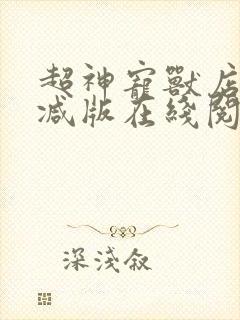 超神寵獸店
减版在綫閱
深淺叙